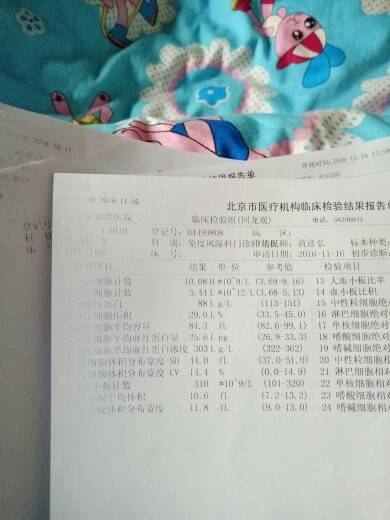 2016-10-11
结果报告单
审核时间:2016-11-16
2016-11-16
北京市医疗机构临床检验结果报告单
水潭医院
临床检验组(回龙观)
电话: 58398043
登记号: 04499808
病 区:
科 别: 免疫风湿科门诊
医师: 黄彦弘
标本种类:
床 号:
申请日期: 2016-11-16
初步诊断:
检验项目 结果 单 位 参考值 检验项目
细胞计数 10.08H *10^9/L (3.69-9.16) 13 大血小板比率
细胞计数 3.44L *10^12/L (3.68-5.13) 14 血小板比积
88L g/L (113-151) 15 中性粒细胞绝对
29.0L % (33.5-45.0) 16 淋巴细胞绝对
细胞平均容量 84.3 fL (82.6-99.1) 17 单核细胞绝对
细胞平均血红蛋白量 25.6L pg (26.9-33.3) 18 嗜酸细胞绝对
细胞平均血红蛋白浓度 303L g/L (322-362) 19 嗜碱细胞绝对
细胞体积分布宽度 SD 44.0 fL (37.0-51.0) 20 中性粒细胞相
细胞体积分布宽度 CV 14.4 % (0.0-14.9) 21 淋巴细胞相对
血小板计数 310 *10^9/L (101-320) 22 单核细胞相对
小板平均体积 10.6 fL (7.2-13.2) 23 嗜酸细胞相对
小板分布宽度 11.8 fL (9.0-13.0) 24 嗜碱细胞相对